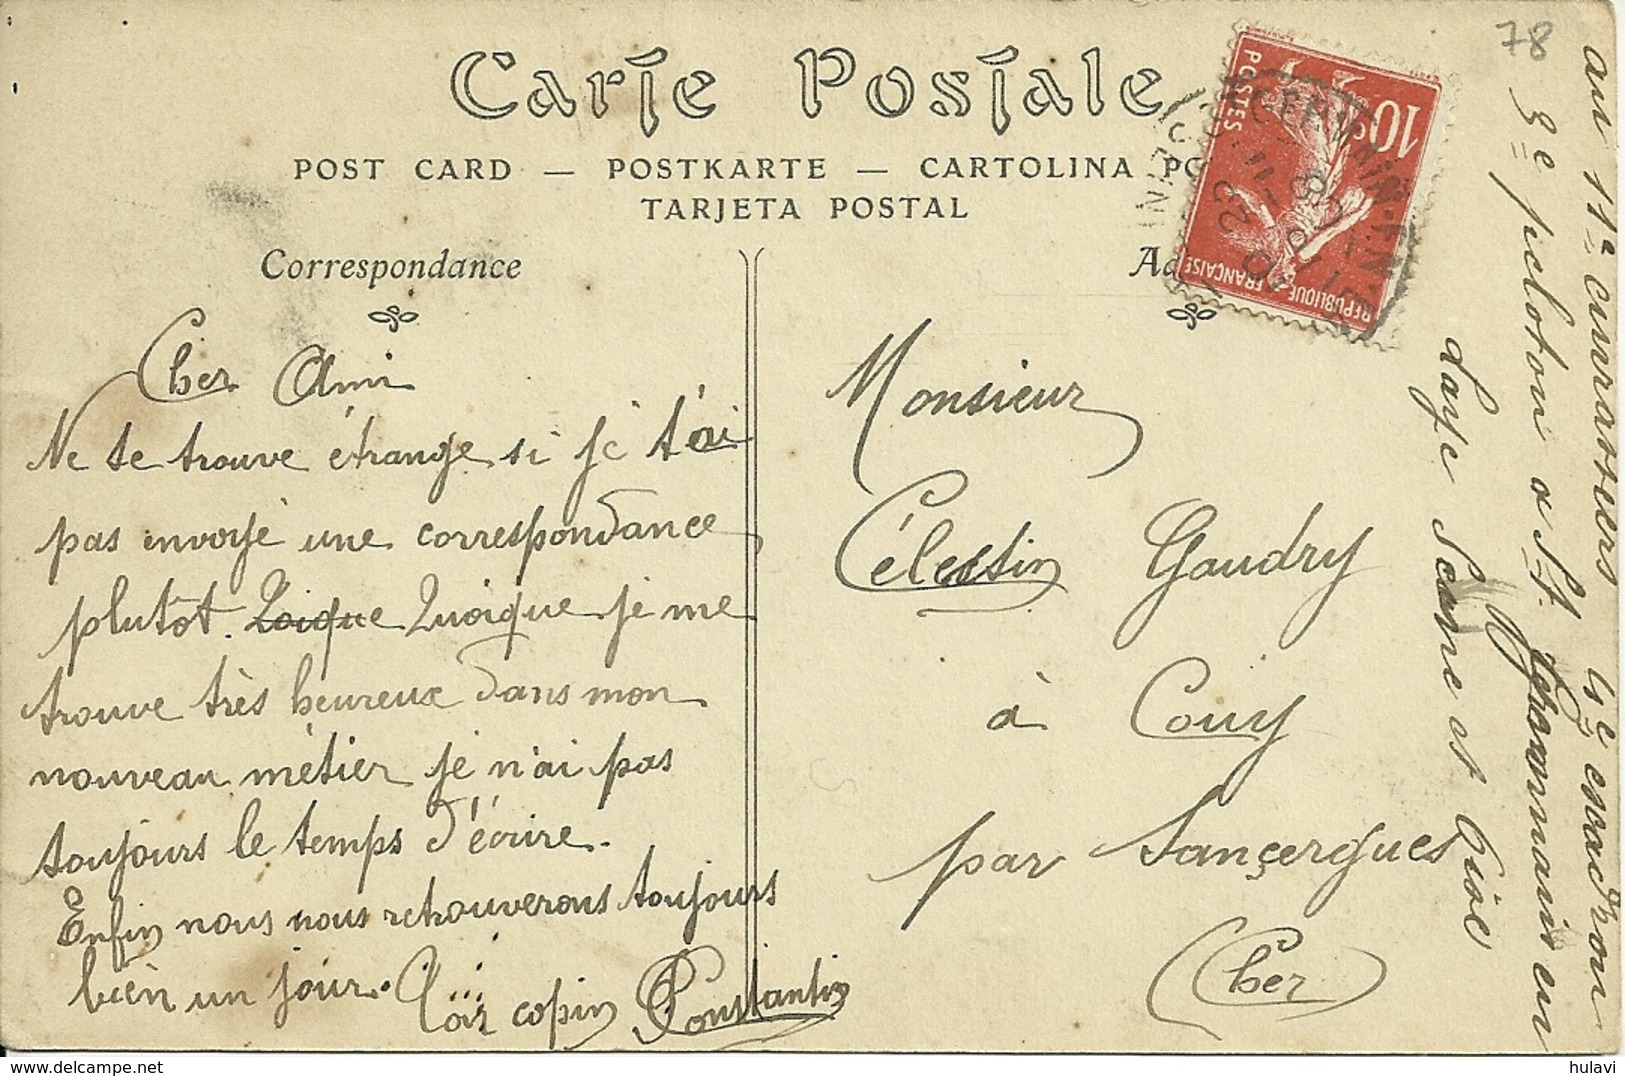 Carte Postale
POST CARD — POSTKARTE — CARTOLINA PO
TARJETA POSTAL
Correspondance
Cher Ami
Ne te trouve étrange si je t'ai
pas envoyé une correspondance
plutôt. Quoique je me
trouve très heureux dans mon
nouveau métier je n'ai pas
toujours le temps d'écrire.
Enfin nous nous retrouverons toujours
bien un jour.
copin Constantin
10c
POSTES
REPUBLIQUE FRANÇAISE
Monsieur
Célestin Gaudry
à Couy
par Sançergues
(Cher)
78
au 11e cuirassiers 4e escadron
3e peloton a St. Germain en
Laye Seine et Oise
hulavi